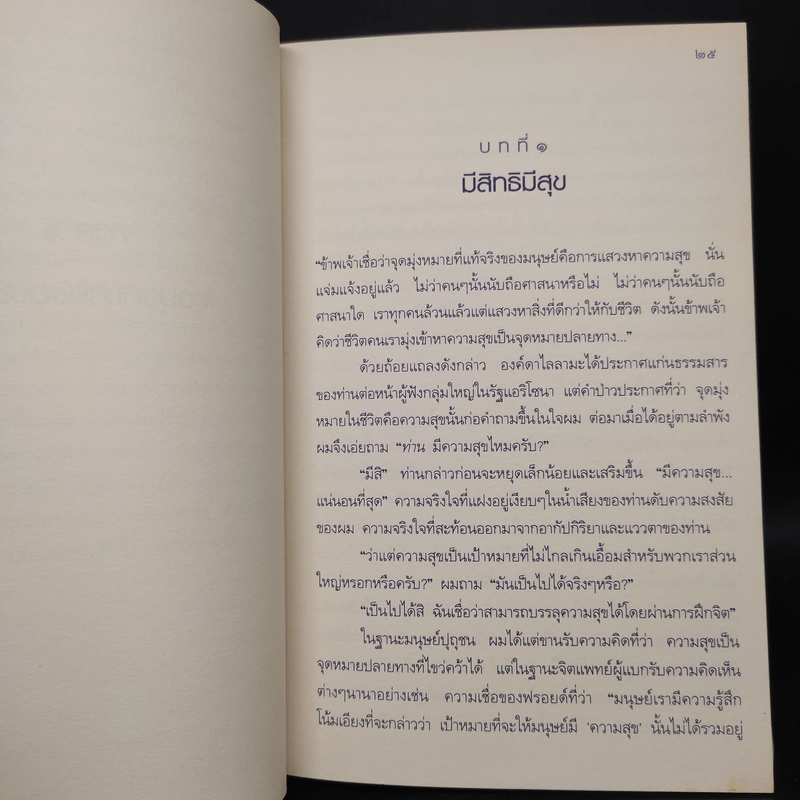 ๒๕
บทที่๑
มีสิทธิมีสุข
“ข้าพเจ้าเชื่อว่าจุดมุ่งหมายที่แท้จริงของมนุษย์คือการแสวงหาความสุข นั่น
แจ่มแจ้งอยู่แล้ว ไม่ว่าคนๆนั้นนับถือศาสนาหรือไม่ ไม่ว่าคนๆนั้นนับถือ
ศาสนาใด เราทุกคนล้วนแล้วแต่แสวงหาสิ่งที่ดีกว่าให้กับชีวิต ดังนั้นข้าพเจ้า
คิดว่าชีวิตคนเรามุ่งเข้าหาความสุขเป็นจุดหมายปลายทาง...”
ด้วยถ้อยแถลงดังกล่าว องค์ดาไลลามะได้ประกาศแก่นธรรมสาร
ของท่านต่อหน้าผู้ฟังกลุ่มใหญ่ในรัฐแอริโซนา แต่คำป่าวประกาศที่ว่า จุดมุ่ง
หมายในชีวิตคือความสุขนั้นก่อคำถามขึ้นในใจผม ต่อมาเมื่อได้อยู่ตามลำพัง
ผมจึงเอ่ยถาม “ท่าน มีความสุขไหมครับ?”
“มีสิ” ท่านกล่าวก่อนจะหยุดเล็กน้อยและเสริมขึ้น “มีความสุข...
แน่นอนที่สุด” ความจริงใจที่แฝงอยู่เงียบๆในน้ำเสียงของท่านดับความสงสัย
ของผม ความจริงใจที่สะท้อนออกมาจากอากัปกิริยาและแววตาของท่าน
“ว่าแต่ความสุขเป็นเป้าหมายที่ไม่ไกลเกินเอื้อมสำหรับพวกเราส่วน
ใหญ่หรอกหรือครับ?” ผมถาม “มันเป็นไปได้จริงๆหรือ?”
“เป็นไปได้สิ ฉันเชื่อว่าสามารถบรรลุความสุขได้โดยผ่านการฝึกจิต”
ในฐานะมนุษย์ปุถุชน ผมได้แต่ขานรับความคิดที่ว่า ความสุขเป็น
จุดหมายปลายทางที่ไขว่คว้าได้ แต่ในฐานะจิตแพทย์ผู้แบกรับความคิดเห็น
ต่างๆนานาอย่างเช่น ความเชื่อของฟรอยด์ที่ว่า “มนุษย์เรามีความรู้สึก
โน้มเอียงที่จะกล่าวว่า เป้าหมายที่จะให้มนุษย์มี ‘ความสุข’ นั้นไม่ได้รวมอยู่